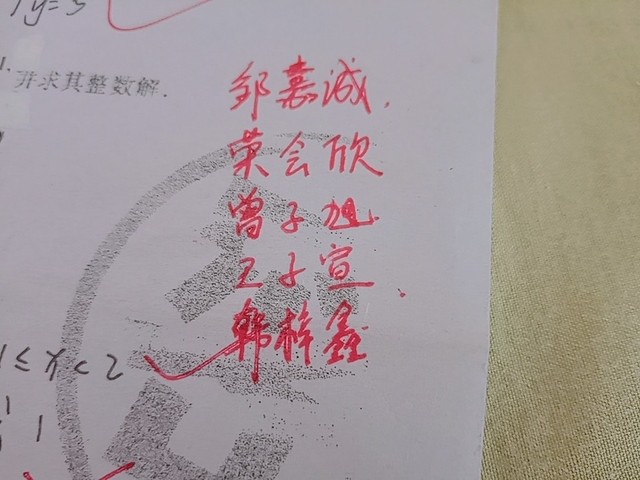 y=3
并求其整数解.
邹嘉诚.
荣会欣
曾子旭
王子宣.
韩梓鑫
1≤x<2
1